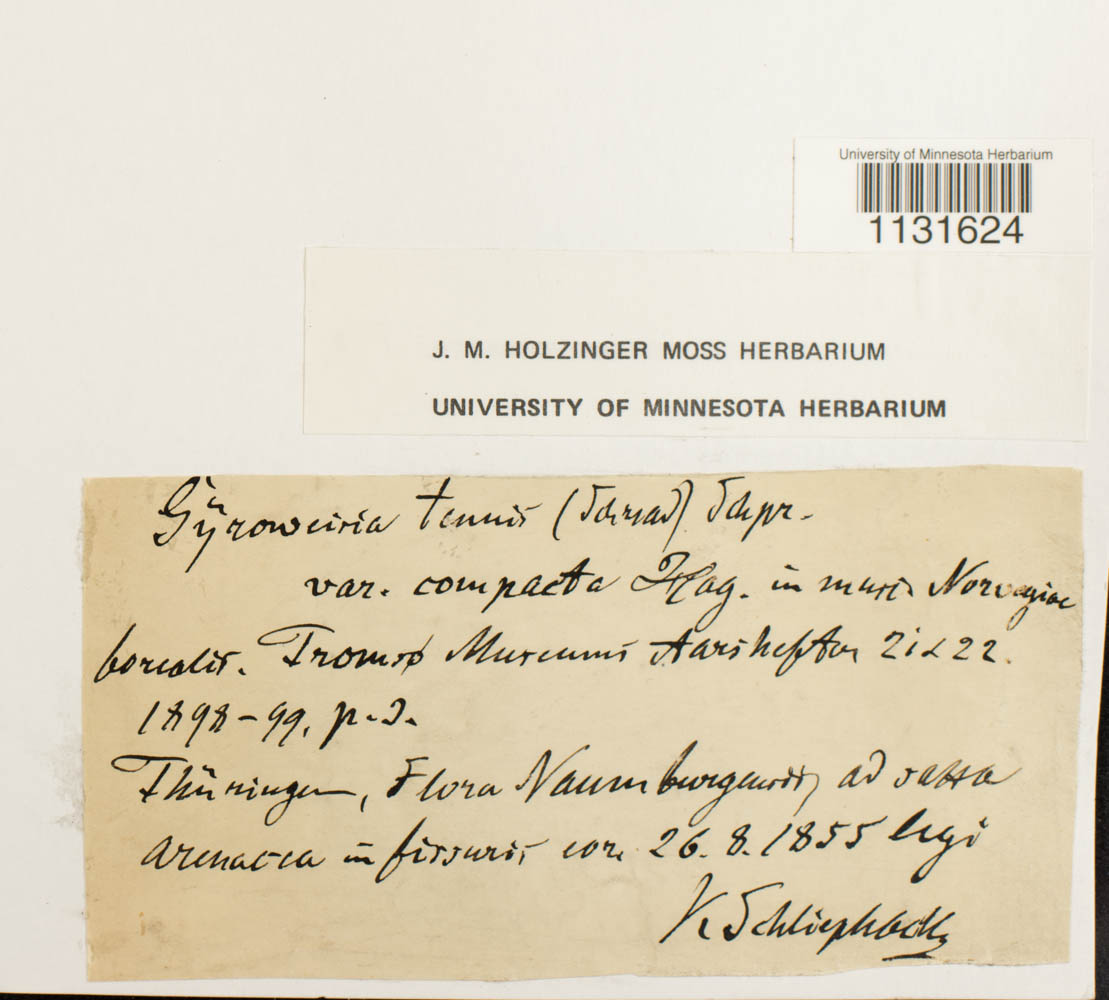 University of Minnesota Herbarium
1131624
J. M. HOLZINGER MOSS HERBARIUM
UNIVERSITY OF MINNESOTA HERBARIUM
Gÿroweisia tenuis (Schrad) Schpr.
var. compacta Hag. in musci Norvegiae
borealis. Tromsø Museums Aarshefter 21 & 22.
1898-99, p. 3.
Thüringen, Flora Naumburgensis, ad saxa
arenacea in fissuris eor. 26. 8. 1855 legi
K Schliephacke